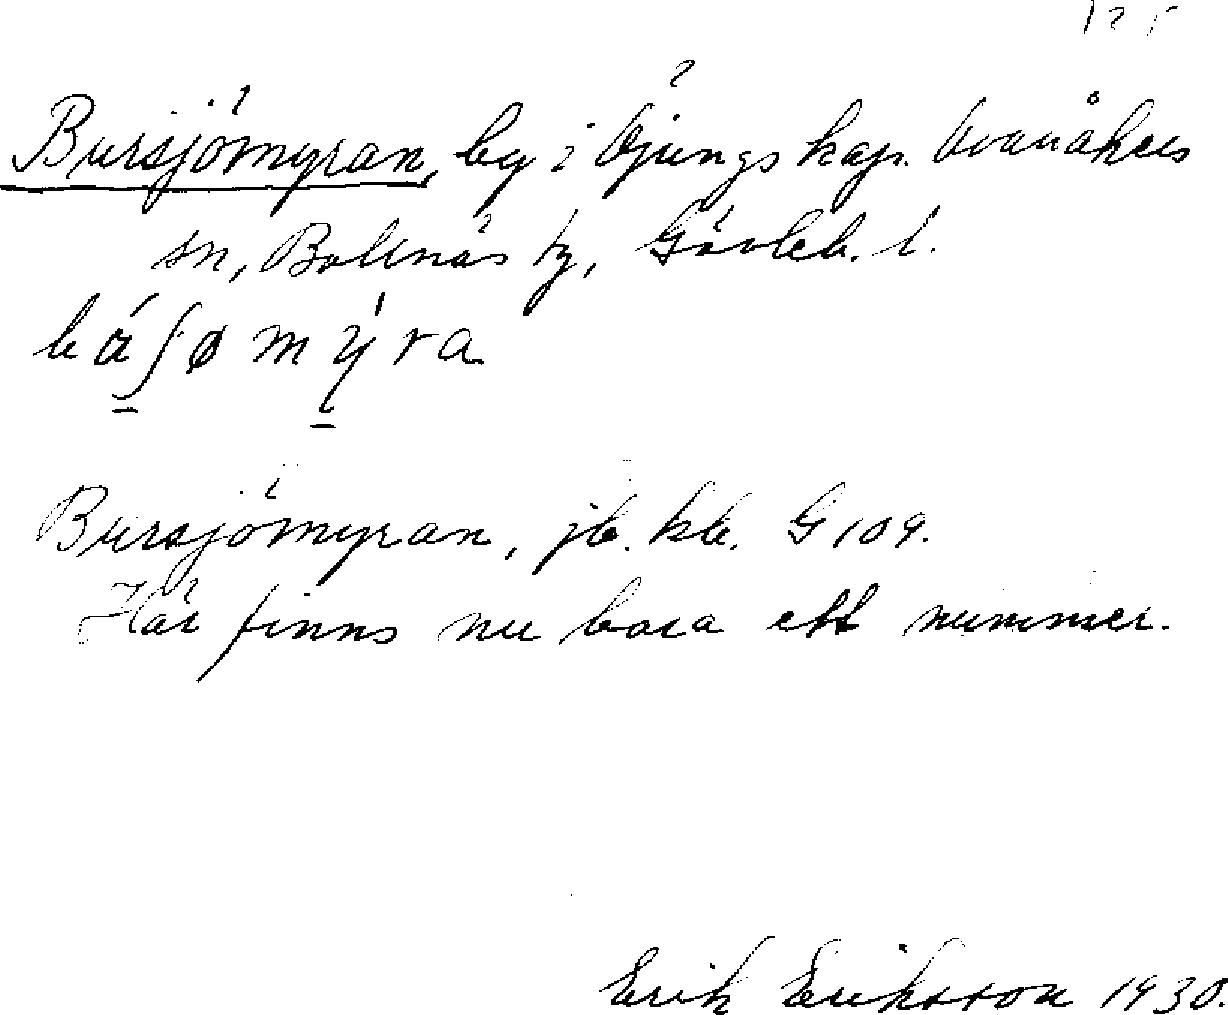 Bursjömyran, by i Öjungs kap. Ovanåkers
sn, Bollnäs tg, Gävleb. l.
Bursjömyran, jb. kb. G 109.
Här finns nu bara ett nummer.
Erik Eriksson 1930.